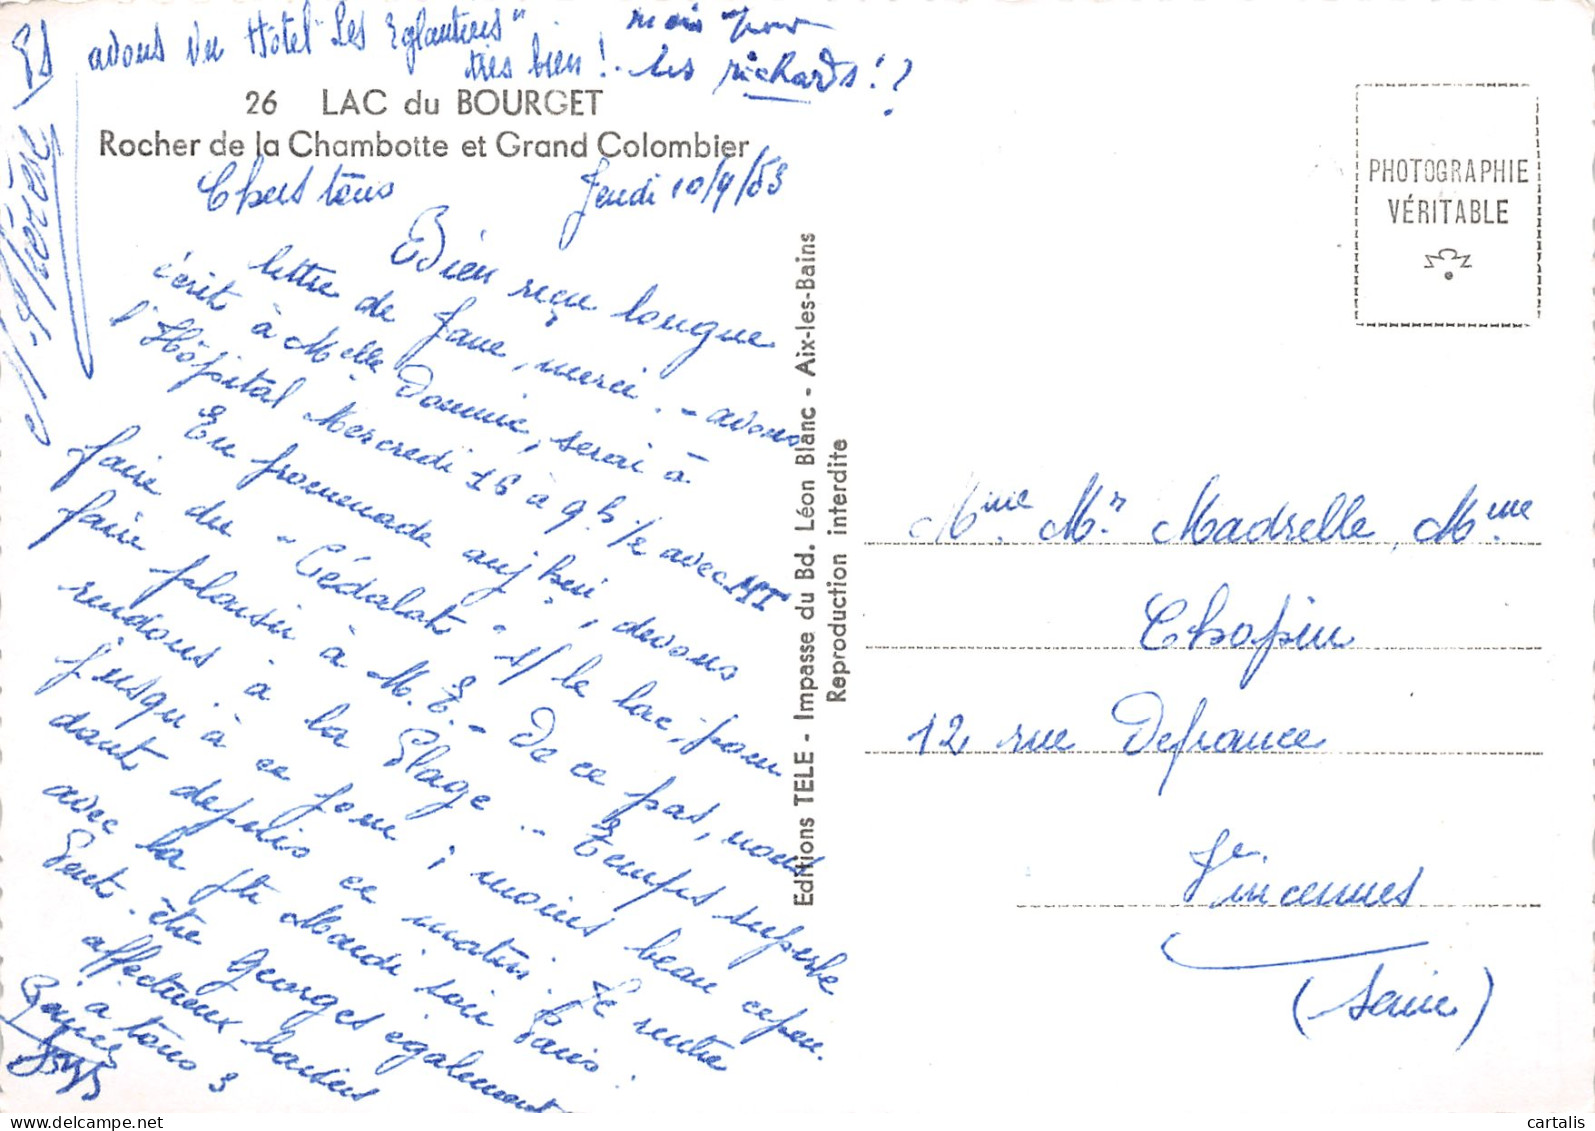 PS avons vu Hôtel "Les Eglantiers" , mais pour
très bien ! - les richards ! ?
26 LAC du BOURGET
Rocher de la Chambotte et Grand Colombier
Chers tous Jeudi 10/9/53
Bien reçu longue
lettre de Jane, merci. - avons
écrit à Melle Dominic, serai à
l'Hôpital Mercredi 16 à 9h 1/2 avec MT
En promenade aujhui, devons
faire du "Cédalat" s/ le lac, pour
faire plaisir à M.E. - De ce pas, nous
rendons à la Plage .. Temps superbe
jusqu'à ce jour ; moins beau cepen.
dant depuis ce matin. Je rentre
avec la fte Mardi soir Paris.
Peut-être Georges également
affectueux baisers
à tous 3
M. Thérèse
Editions TELE - Impasse du Bd. Léon Blanc - Aix-les-Bains
Reproduction interdite
PHOTOGRAPHIE
VÉRITABLE
Mme Mr Madrelle, Mme
Chopin
12 rue Defrance
Vincennes
(Seine)
cartalis